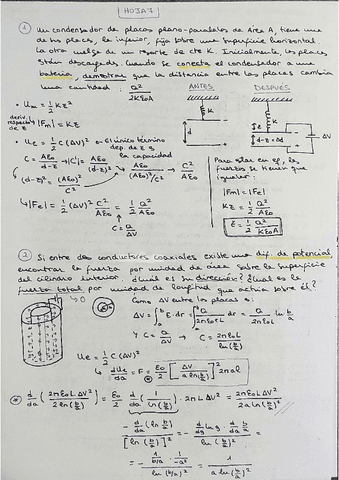 HOJA 7
① Un condensador de placas plano-paralelas de Area A, tiene una
de las placas, la inferior, fija sobre una superficie horizontal
La otra cuelga de un resorte de cte K. Inicialmente, las placas
están descargadas. Cuando se conecta el condensador a una
batería, demostrar que la distancia entre las placas cambia
una cantidad: Q²/2KE₀A
ANTES DESPUÉS
• Um = 1/2 KZ²
deriv. respecto de z
|Fm| = KZ
• Ue = 1/2 C (ΔV)² → El único término dep. de z es la capacidad
C = AE₀/d → C' = AE₀/(d-z)²
(d-z)² = (AE₀)²/C²
AE₀/((AE₀)²/C²) → C²/AE₀
• |Fe| = 1/2 (ΔV)² C²/AE₀ = 1/2 Q²/AE₀
C = Q/ΔV
K
d
K
z
d-z = d
ΔV
Para estar en eq, las
fuerzas se tienen que
igualar:
|Fm| = |Fe|
KZ = 1/2 Q²/AE₀
Z = 1/2 Q²/KE₀A
② Si entre dos conductores coaxiales existe una dif. de potencial
encontrar la fuerza por unidad de area sobre la superficie
del cilindro interior ¿Cuál es su dirección? ¿Cuál es la
fuerza total por unidad de longitud que actúa sobre él?
Como ΔV entre las placas es:
ΔV = ∫ₐᵇ E·dr = ∫ₐᵇ Q/2πE₀rL dr = Q/2πE₀L ln b/a
y C = Q/ΔV → C = 2πE₀L/ln(b/a)
Ue = 1/2 C (ΔV)²
↳ dUe/da = F = E₀/2 [ΔV/(a ln(b/a))]² 2πaL
⊛ d/da (2πE₀LΔV²/2ln(b/a)) = E₀/2 d/da (1/ln(b/a)) · 2πLΔV² = 2πE₀LΔV²/2a ln(b/a)²
-d/da (ln b/a)/[ln(b/a)]² = -d/dg ln g · d/da b/a / ln(b/a)² =
= -1/(b/a) · 1/-a² / ln(b/a)² = 1/a ln(b/a)²